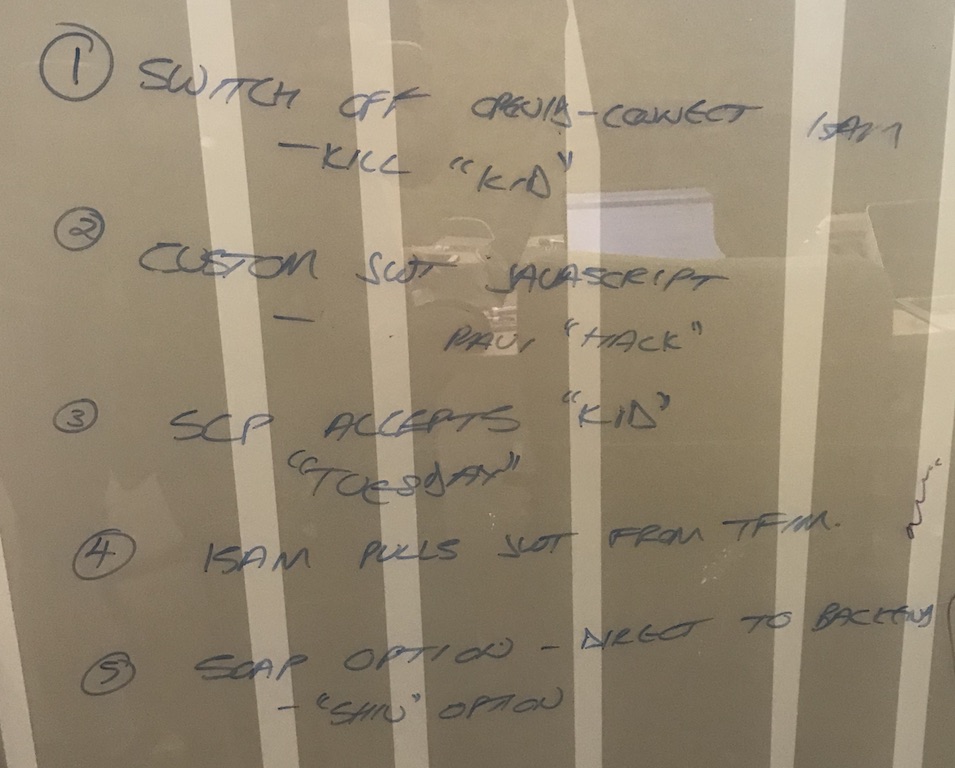 ① SWITCH OFF OPENID-CONNECT ISAM
— KILL "KID"
② CUSTOM JWT JAVASCRIPT
— "HACK"
③ SCP ACCEPTS "KID"
"TUESDAY"
④ ISAM PULLS JWT FROM TFIM.
⑤ SOAP OPTION – DIRECT TO BACKEND
– OPTION